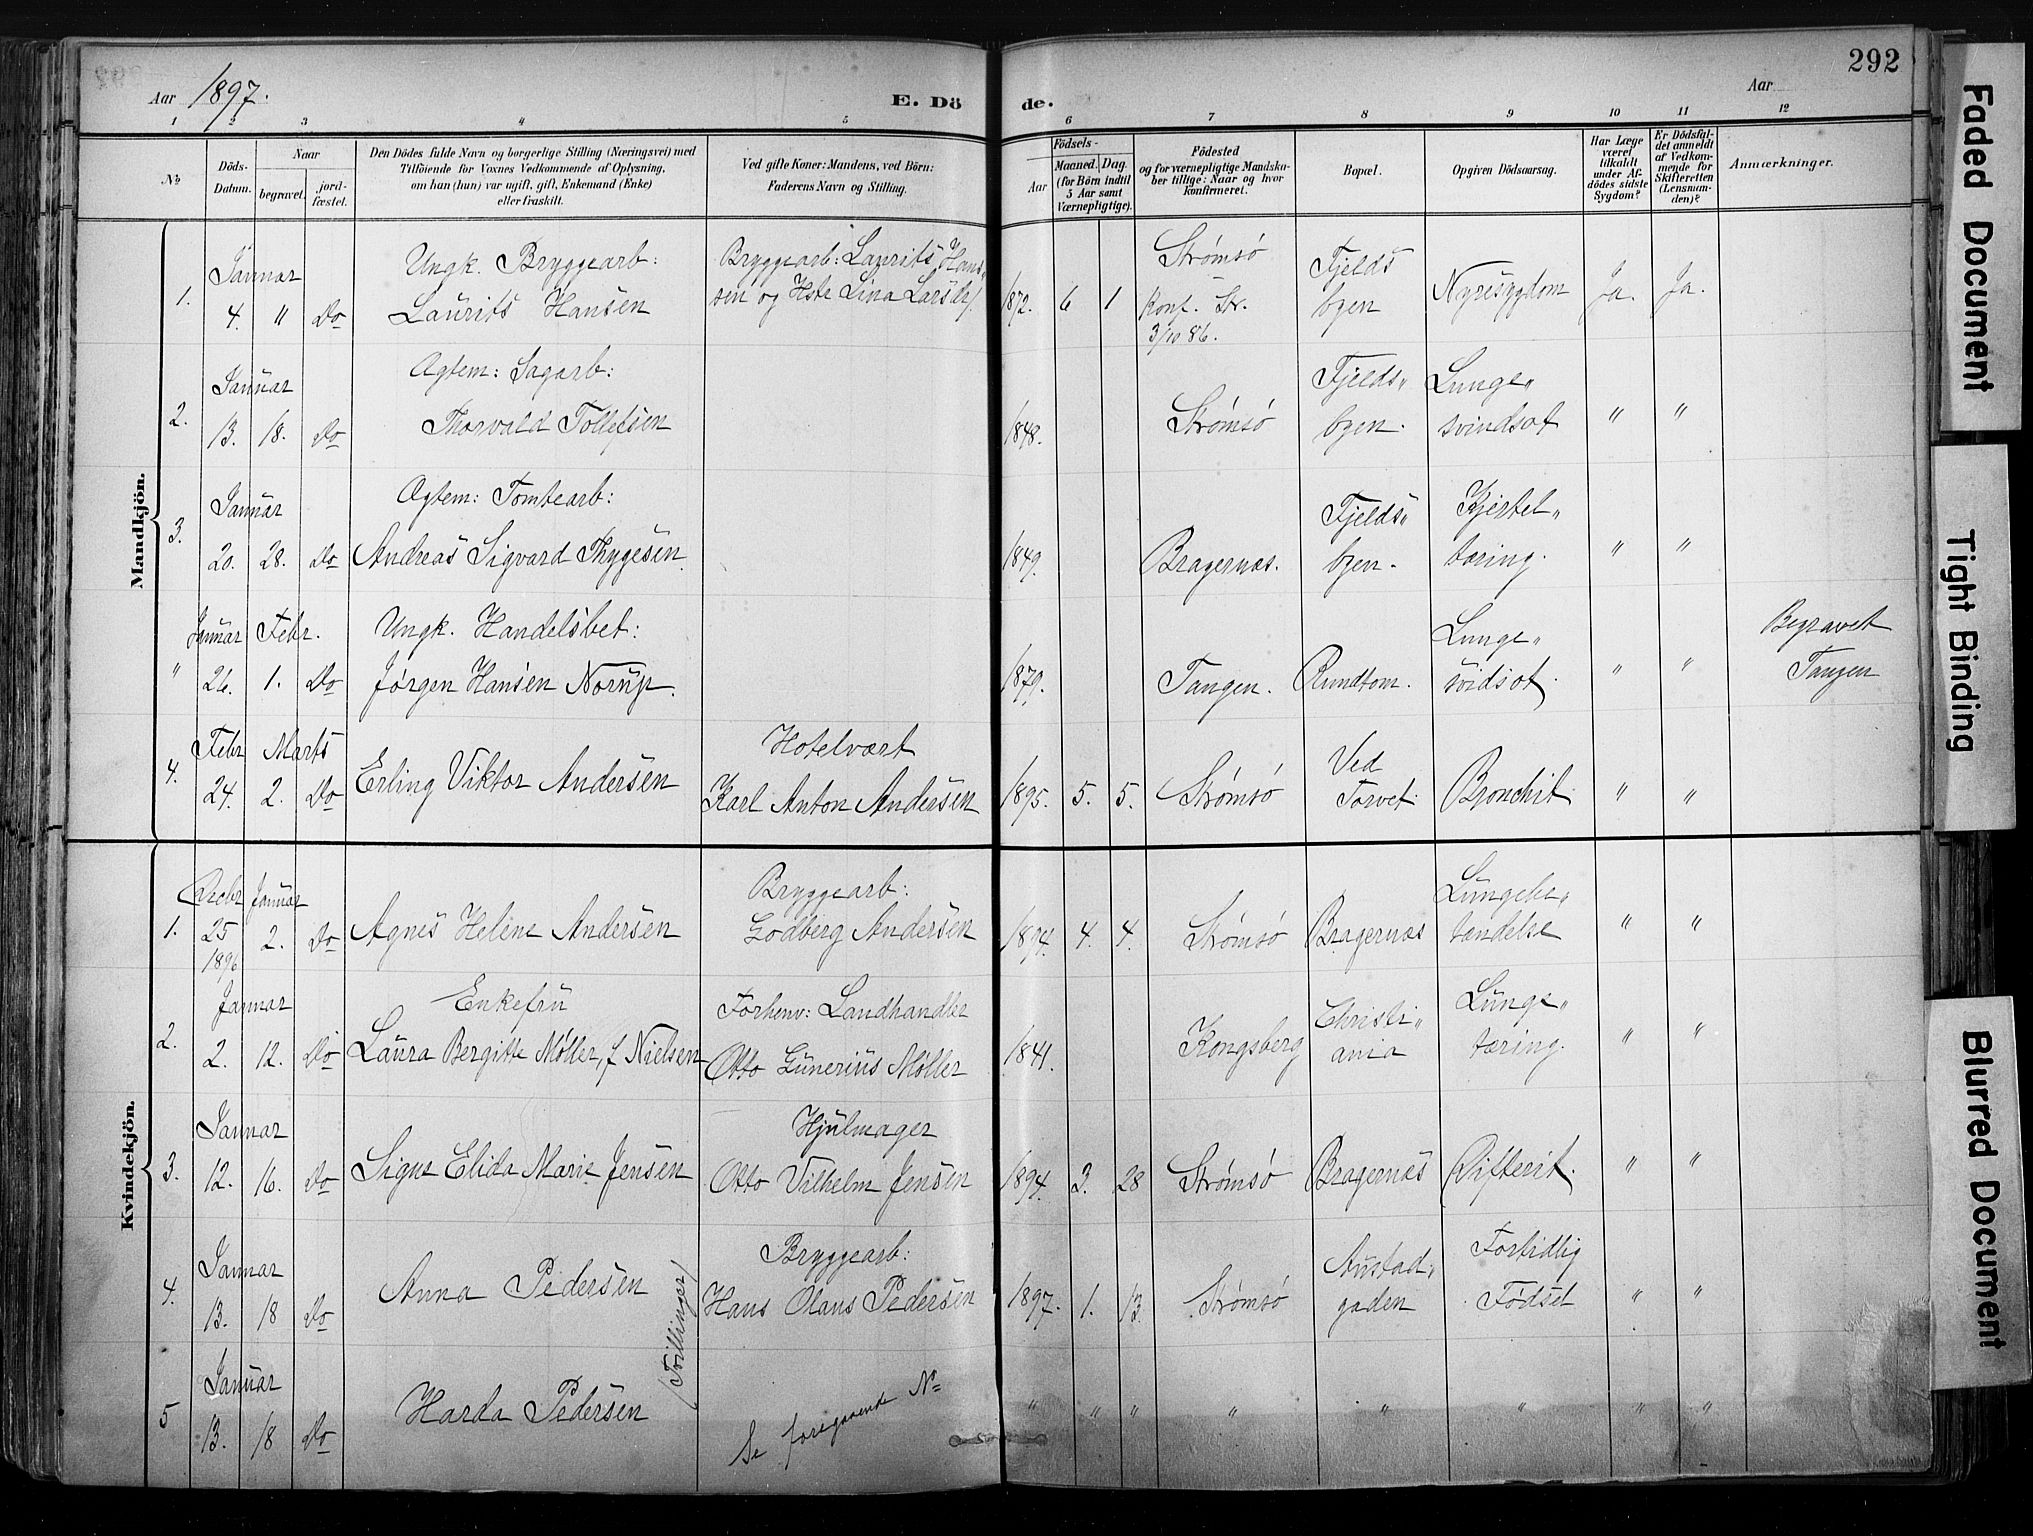 292
Aar 1897.
E. Döde.
Aar
1 2 3 4 5 6 7 8 9 10 11 12
No
Döds-Datum.
Naar
begravet.
jordfæstet.
Den Dödes fulde Navn og borgerlige Stilling (Næringsvei) med
Tilföiende for Voxnes Vedkommende af Oplysning,
om han (hun) var ugift, gift, Enkemand (Enke)
eller fraskilt.
Ved gifte Koner: Mandens, ved Börn:
Faderens Navn og Stilling.
Födsels-
Aar
Maaned. Dag.
(for Börn indtil
5 Aar samt
Værnepligtige).
Födested
og for værnepligtige Mandska-
ber tillige: Naar og hvor
konfirmeret.
Bopæl.
Opgiven Dödsaarsag.
Har Læge
været
tilkaldt
under Af-
dödes sidste
Sygdom?
Er Dödsfal-
det anmeldt
af Vedkom-
mende for
Skifteretten
(Lensman-
den)?
Anmærkninger.
Mandkjön.
1. Januar 4. " Do
Ungk. Bryggearb:
Laurits Hansen
Bryggearb: Laurits Han-
sen og Hste Lina Larsdr.
1872. 6 1
Strømsø
Konf. Str.
3/10 86.
Fjelds
byen
Nyresygdom
Ja. Ja.
2. Januar 13. 18. Do
Agtem: Sagarb:
Thorvald Tollefsen
1848.
Strømsø
Fjelds"
byen.
Lunge"
svindsot
" "
3. Januar 20. 28. Do
Agtem: Tomtearb:
Andreas Sigvard Thygesen.
1849.
Bragernæs.
Fjelds"
byen.
Kjertel"
tæring.
" "
" Januar 26. Febr. 1. Do
Ungk. Handelsbet:
Jørgen Hansen Norup.
1879.
Tangen.
Rundtom.
Lunge"
svidsot.
" "
Begravet
Tangen
4. Febr 24. Marts 2. Do
Erling Viktor Andersen
Hotelvært
Karl Anton Andersen
1895. 5. 5.
Strømsø
Ved
Torvet.
Bronchit.
" "
Kvindekjön.
1. Decbr 25 1896 Januar 2. Do
Agnes Helene Andersen
Bryggearb:
Godberg Andersen
1894. 4. 4.
Strømsø
Bragernæs
Lungebe"
tændelse
" "
2. Januar 2. 12. Do
Enkefru
Laura Bergitte Møller, f Nielsen
Forhenv: Landhandler
Otto Gunerius Møller
1841.
Kongsberg
Christi"
ania
Lunge"
tæring.
" "
3. Januar 12. 16. Do
Signe Elida Marie Jensen
Hjulmager
Otto Vilhelm Jensen
1894. 3. 28
Strømsø
Bragernæs
Difterit.
" "
4. Januar 13. 18 Do
Anna Pedersen
(Tvillinger)
Bryggearb:
Hans Olaus Pedersen
1897. 1. 13.
Strømsø
Austad"
gaden
Fortidlig
Fødsel
" "
5 Januar 13. 18 Do
Harda Pedersen
Se foregaaende No
" " " " " " " "
Faded Document
Tight Binding
Blurred Document